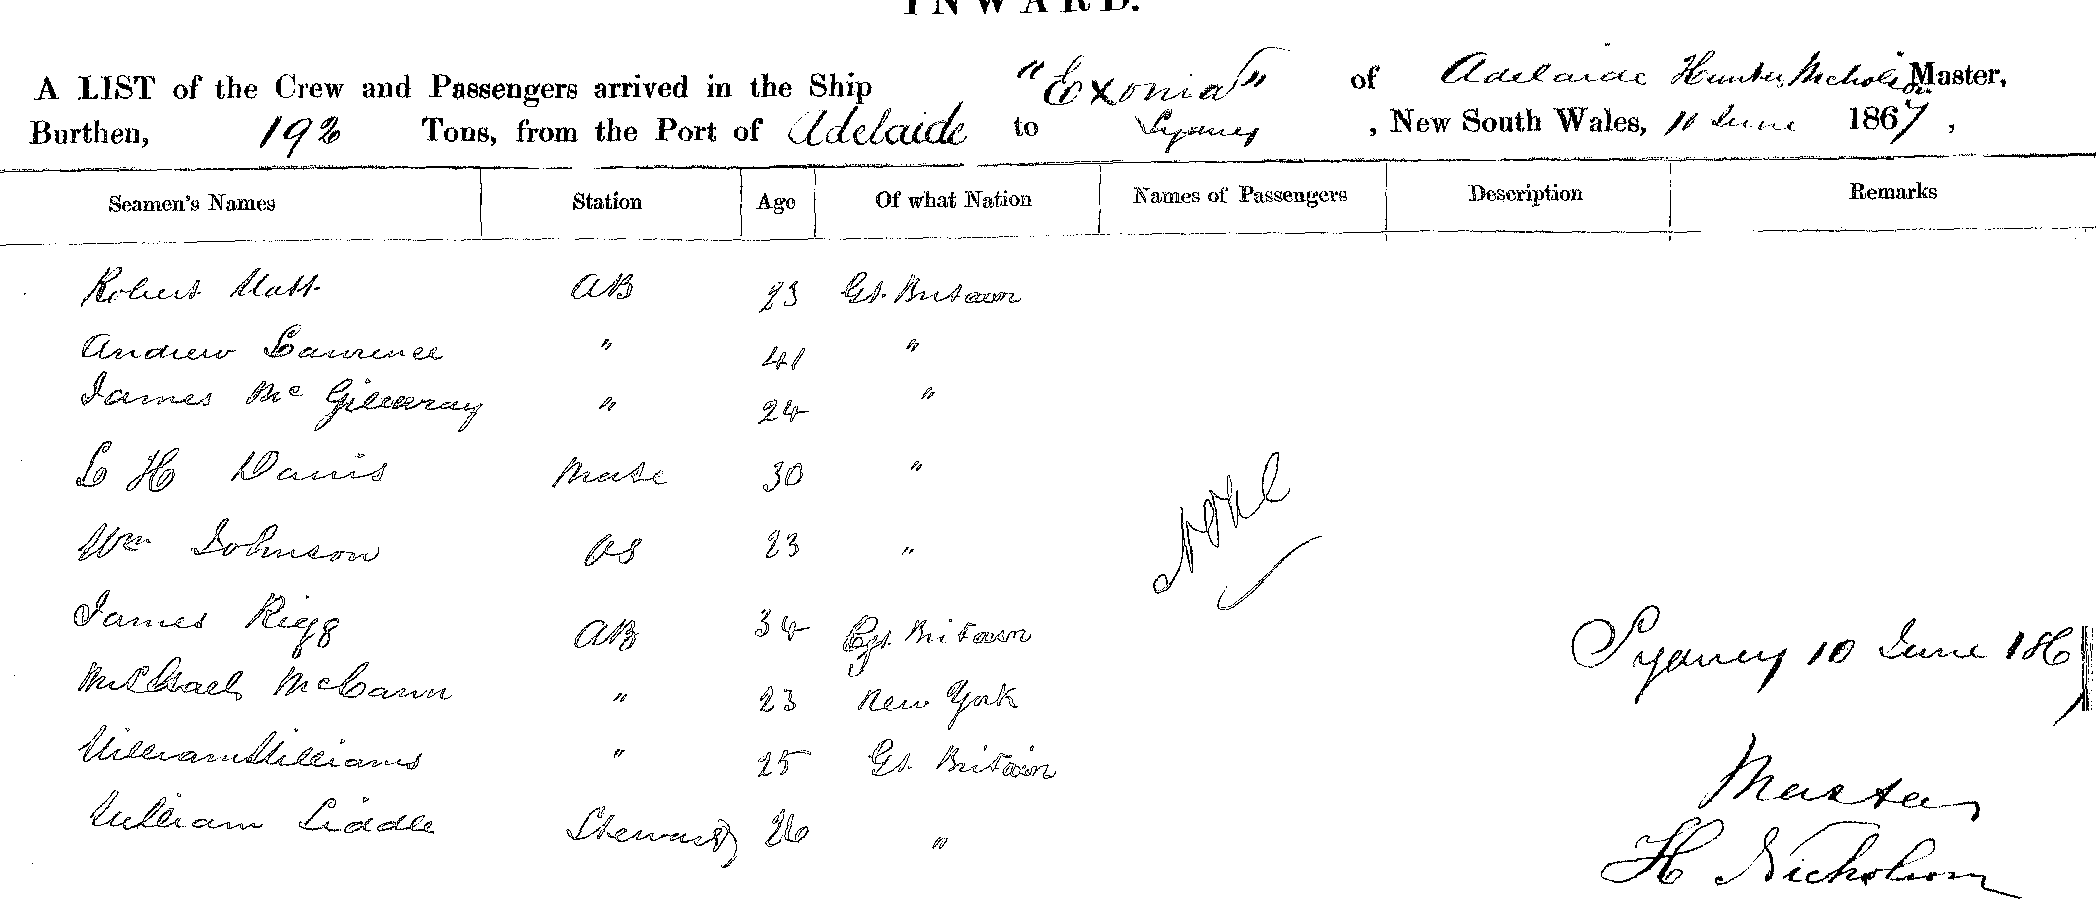 INWARD.
A LIST of the Crew and Passengers arrived in the Ship "Exonia" of Adelaide Hunter Nicholson Master,
Burthen, 192 Tons, from the Port of Adelaide to Sydney, New South Wales, 11 June 1867,
Seamen's Names Station Age Of what Nation Names of Passengers Description Remarks
Robert AB 23 Gt. Britain
Andrew Lawrence " 41 "
James McGilvray " 24 "
L H Davis Mate 30 "
None
Wm Johnson OS 23 "
James Rigg AB 34 Gt. Britain
Sydney 10 June 1867
Michael McCann " 23 New York
William Williams " 25 Gt. Britain
Master
William Liddle Steward 26 "
H Nicholson